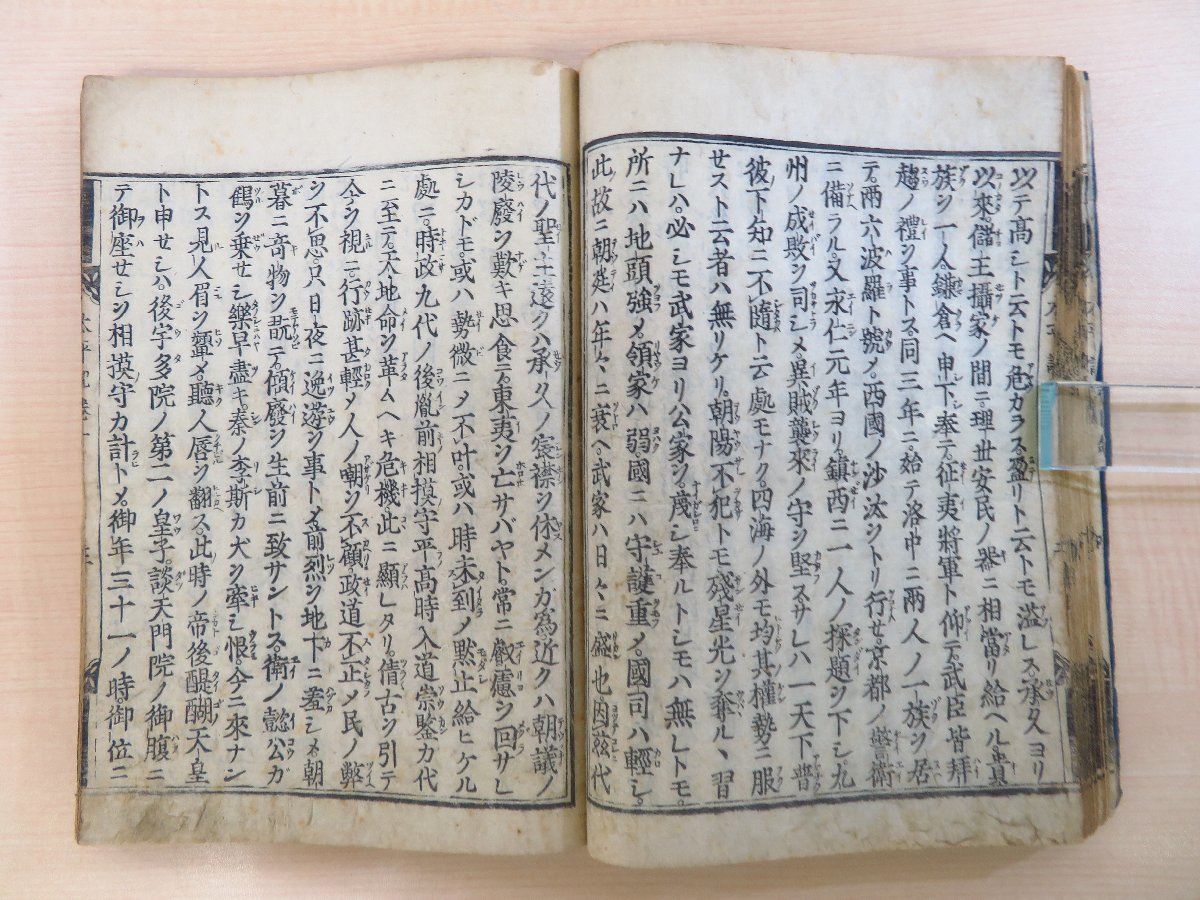 以テ高シト云トモ危カラス盈リト云トモ溢レス。承久ヨリ
以來。儲主攝家ノ間ニ理世安民ノ器ニ相當リ給ヘル貴
族ヲ一人。鎌倉ヘ申下奉テ。征夷將軍ト仰テ。武臣皆拜
趨ノ禮ヲ事トス。同三年ニ。始テ洛中ニ兩人ノ一族ヲ居
テ。兩六波羅ト號メ。西國ノ沙汰ヲトリ行セ。京都ノ警衛
ニ備ラル。又永仁元年ヨリ。鎮西ニ一人ノ探題ヲ下シ。九
州ノ成敗ヲ司シメ。異賊襲來ノ守ヲ堅スサレハ一天下普
彼下知ニ不隨ト云處モナク。四海ノ外モ均其權勢ニ服
セスト云者ハ無リケリ。朝陽不犯トモ。殘星光ヲ奪ルヽ習
ナレハ。必シモ武家ヨリ公家ヲ蔑シ奉ルトシモハ無レトモ。
所ニハ地頭強メ。領家ハ弱。國ニハ守護重メ。國司ハ輕シ。
此故ニ朝廷ハ年々ニ衰ヘ。武家ハ日々ニ盛也。因茲代
代ノ聖主遠クハ承久ノ宸襟ヲ休メンカ為。近クハ朝議ノ
陵廢ヲ歎キ思食テ。東夷ヲ亡サバヤト。常ニ叡慮ヲ回サレ
シカドモ。或ハ勢微ニメ不叶。或ハ時未到メ黙止給ヒケル
處ニ。時政九代ノ後胤。前相摸守平高時入道崇鑒カ代
ニ至テ。天地命ヲ革ムヘキ危機。此ニ顯レタリ。倩古ヲ引テ
今ヲ視ニ。行跡甚輕メ。人ノ嘲ヲ不顧。政道不正メ。民ノ弊
ヲ不思。只日夜ニ逸遊ヲ事トメ。前烈ヲ地下ニ羞シメ。朝
暮ニ奇物ヲ翫テ。傾廢ヲ生前ニ致サントス。衛ノ懿公ガ
鶴ヲ乗セシ樂早盡キ。秦ノ李斯カ犬ヲ牽シ恨。今ニ來ナン
トス。見人眉ヲ顰メ。聽人唇ヲ翻ス。此時ノ帝後醍醐天皇
ト申セシハ。後宇多院ノ第二ノ皇子。談天門院ノ御腹ニ
テ御座セシヲ。相摸守カ計トメ。御年三十一ノ時。御位ニ